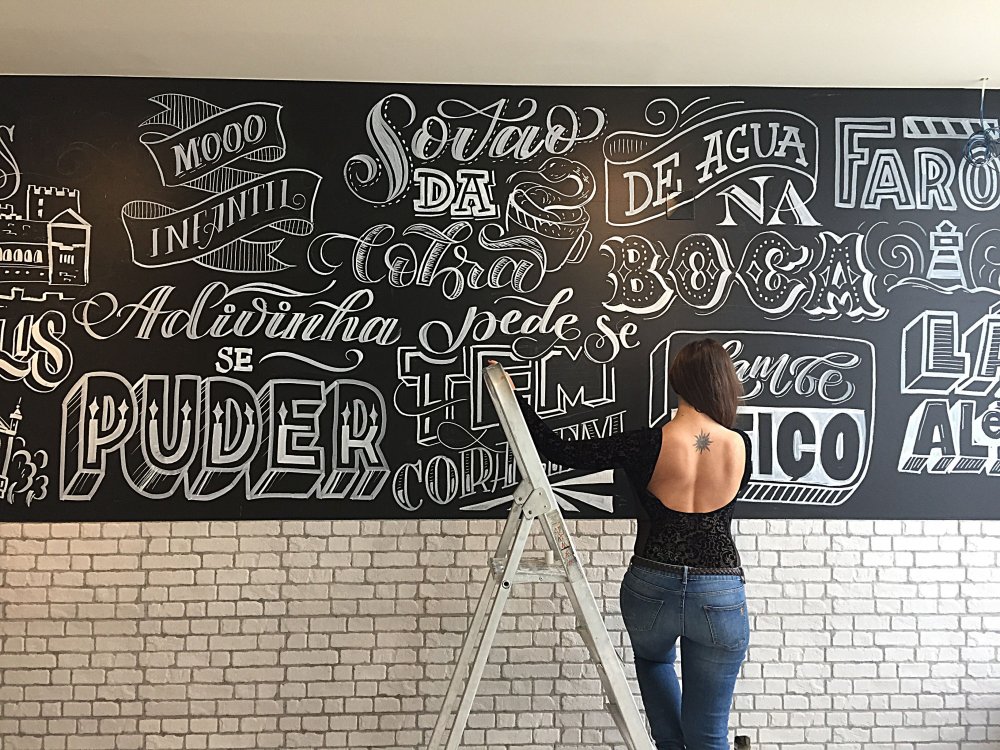 MOOO
INFANTIL
Sovaco
DA
Cobra
DE AGUA
NA
BOCA
FARO
Adivinha
SE
PUDER
pede
se
TEM
LÁ
ALÉ